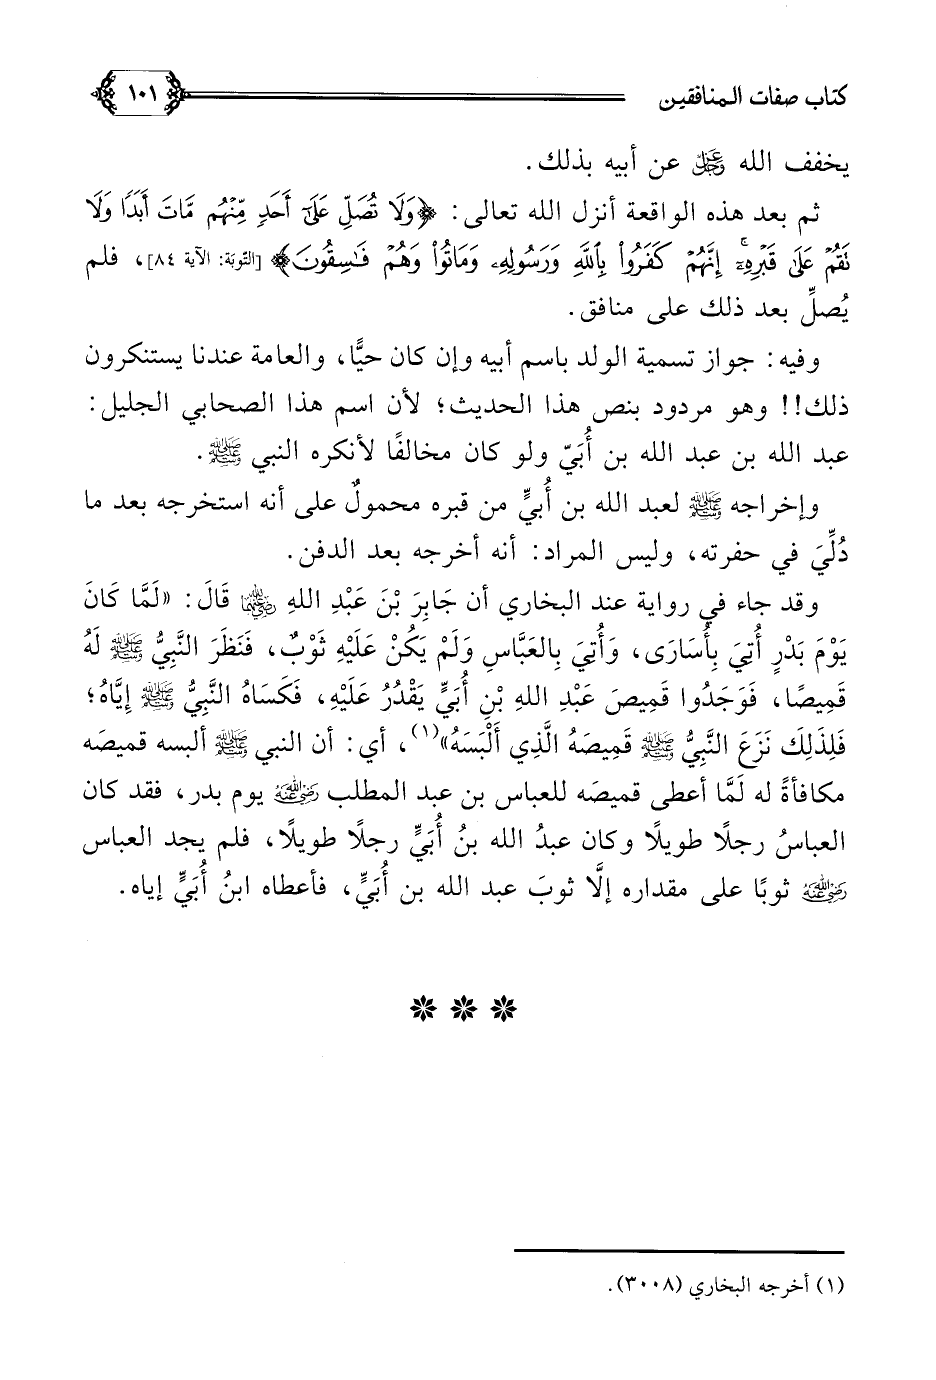 كتاب صفات المنافقين ١٠١
يخفف الله ﷿ عن أبيه بذلك.
ثم بعد هذه الواقعة أنزل الله تعالى: ﴿وَلَا تُصَلِّ عَلَىٰٓ أَحَدٖ مِّنۡهُم مَّاتَ أَبَدٗا وَلَا
تَقُمۡ عَلَىٰ قَبۡرِهِۦٓۚ إِنَّهُمۡ كَفَرُواْ بِٱللَّهِ وَرَسُولِهِۦ وَمَاتُواْ وَهُمۡ فَٰسِقُونَ﴾ [التّوبَة: الآية ٨٤]، فلم
يُصلِّ بعد ذلك على منافق.
وفيه: جواز تسمية الولد باسم أبيه وإن كان حيًّا، والعامة عندنا يستنكرون
ذلك!! وهو مردود بنص هذا الحديث؛ لأن اسم هذا الصحابي الجليل:
عبد الله بن عبد الله بن أُبَيّ ولو كان مخالفًا لأنكره النبي ﷺ.
وإخراجه ﷺ لعبد الله بن أُبيٍّ من قبره محمولٌ على أنه استخرجه بعد ما
دُلِّيَ في حفرته، وليس المراد: أنه أخرجه بعد الدفن.
وقد جاء في رواية عند البخاري أن جَابِرَ بْنَ عَبْدِ اللهِ رضي الله عنهما قَالَ: «لَمَّا كَانَ
يَوْمَ بَدْرٍ أُتِيَ بِأُسَارَى، وَأُتِيَ بِالعَبَّاسِ وَلَمْ يَكُنْ عَلَيْهِ ثَوْبٌ، فَنَظَرَ النَّبِيُّ ﷺ لَهُ
قَمِيصًا، فَوَجَدُوا قَمِيصَ عَبْدِ اللهِ بْنِ أُبَيٍّ يَقْدُرُ عَلَيْهِ، فَكَسَاهُ النَّبِيُّ ﷺ إِيَّاهُ؛
فَلِذَلِكَ نَزَعَ النَّبِيُّ ﷺ قَمِيصَهُ الَّذِي أَلْبَسَهُ»(١)، أي: أن النبي ﷺ ألبسه قميصَه
مكافأةً له لَمَّا أعطى قميصَه للعباس بن عبد المطلب رضي الله عنه يوم بدر، فقد كان
العباسُ رجلًا طويلًا وكان عبدُ الله بنُ أُبَيٍّ رجلًا طويلًا، فلم يجد العباس
رضي الله عنه ثوبًا على مقداره إلَّا ثوبَ عبد الله بن أُبَيٍّ، فأعطاه ابنُ أُبَيٍّ إياه.
(١) أخرجه البخاري (٣٠٠٨).